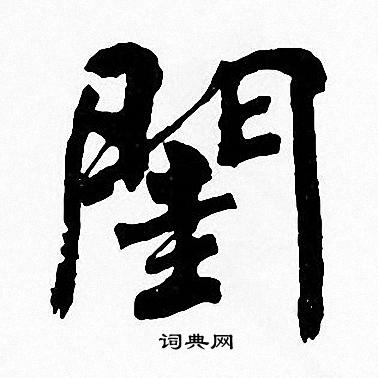 閨
词典网